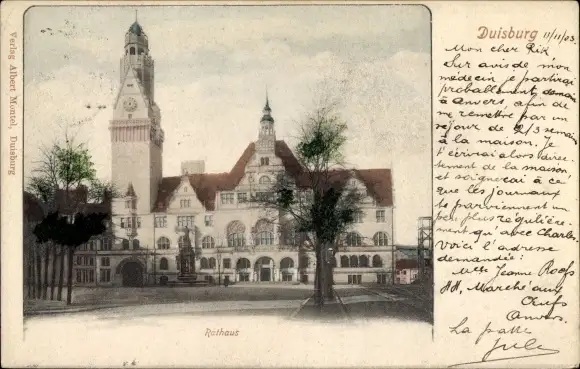 Verlag Albert Montel, Duisburg
Duisburg 11/11/03
Mon cher Rik
Sur avis de mon
médecin je partirai
probablement demain
à Anvers, afin de
me remettre par un
séjour de 2/3 semes
à la maison. Je
t'écrirai alors direc-
tement de la maison,
et soignerai à ce
que les journaux
te parviennent un
peu plus régulière-
ment qu'avec Charles.
Voici l'adresse
demandée:
Mlle Jeanne Roofs
Marché aux
Oeufs
Anvers.
La patte
Jule
Rathaus